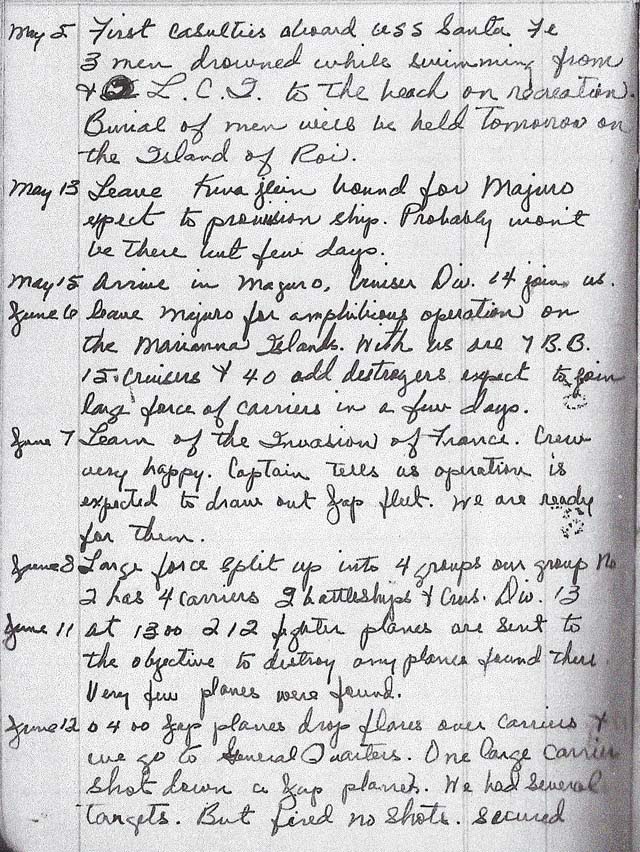 May 5 First casulties aboard USS Santa Fe
3 men drowned while swimming from
L. C. I. to the beach on recreation.
Burial of men will be held tomorrow on
the Island of Roi.
May 13 Leave Kuwajlein bound for Majuro
expect to provision ship. Probably won't
be there but few days.
May 15 Arrive in Majuro, Cruiser Div. 14 join us.
June 6 leave Majuro for amphibious operation on
the Marianna Islands. With us are 7 B.B.
15. cruisers & 40 odd destroyers expect to join
large force of carriers in a few days.
June 7 Learn of the Invasion of France. Crew
very happy. Captain tells us operation is
expected to draw out Jap fleet. We are ready
for them.
June 8 Large force split up into 4 groups our group No
2 has 4 carriers 2 battleships & Crus. Div. 13
June 11 at 1300 212 fighter planes are sent to
the objective to destroy any planes found there.
Very few planes were found.
June 12 0400 Jap planes drop flares over carriers &
we go to General Quarters. One large carrier
shot down a Jap planes. We had several
targets. But fired no shots. secured